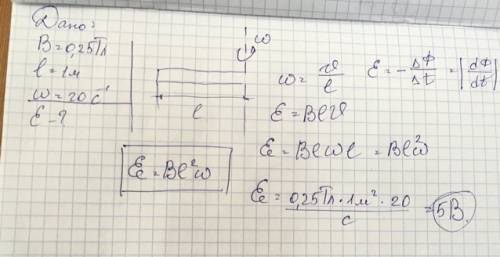 Дано:
B = 0,25 Тл
l = 1 м
ω = 20 с⁻¹
Ɛ - ?
ω
l
ω = v/l
Ɛ = - ΔФ/Δt = |dФ/dt|
Ɛ = Blv
Ɛ = Blωl = Bl²ω
Ɛ = Bl²ω
Ɛ = 0,25 Тл · 1 м² · 20 / с = 5 В.